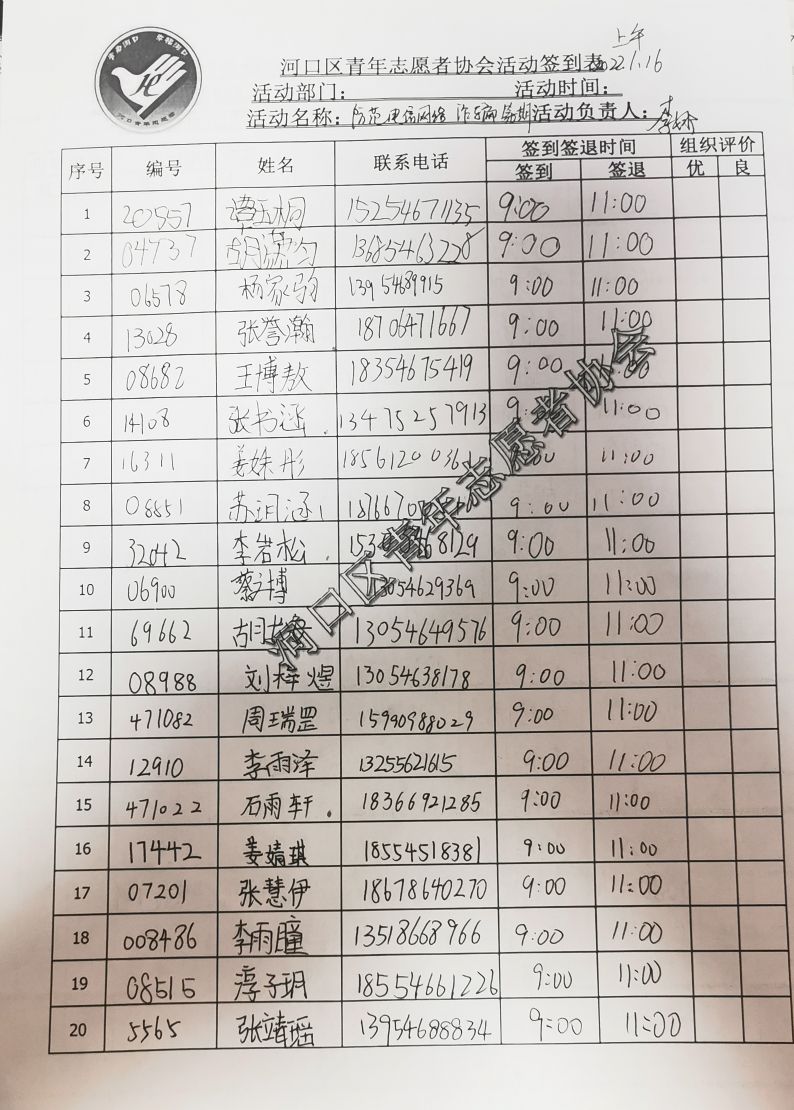 上午
河口区青年志愿者协会活动签到表 2022.1.16
活动部门： 活动时间：
活动名称：防范电信网络诈骗 活动负责人：
序号 编号 姓名 联系电话 签到签退时间 组织评价
签到 签退 优 良
1 20557 谭玉桐 15254671135 9:00 11:00
2 04737 胡潇匀 13685463228 9:00 11:00
3 06578 杨家驹 13954689915 9:00 11:00
4 13028 张誉瀚 18706471667 9:00 11:00
5 08682 王博敖 18354675419 9:00 :00
6 14108 张书涵 13475257913 9 11:00
7 16311 姜姝彤 :00 11:00
8 08851 苏润涵 9:00 11:00
9 32042 李岩松 9:00 11:00
10 06900 蔡文博 13054629369 9:00 11:00
11 69662 胡 13054649576 9:00 11:00
12 08988 刘梓煜 13054638178 9:00 11:00
13 471082 周瑞罡 15990988029 9:00 11:00
14 12910 李雨泽 13255621615 9:00 11:00
15 471022 石雨轩 18366921285 9:00 11:00
16 17442 姜婧琪 18554518381 9:00 11:00
17 07201 张慧伊 18678640270 9:00 11:00
18 008486 李雨瞳 13518668966 9:00 11:00
19 08515 淳子玥 18554661226 9:00 11:00
20 5565 张靖瑶 13954688834 9:00 11:00
河口区青年志愿者协会